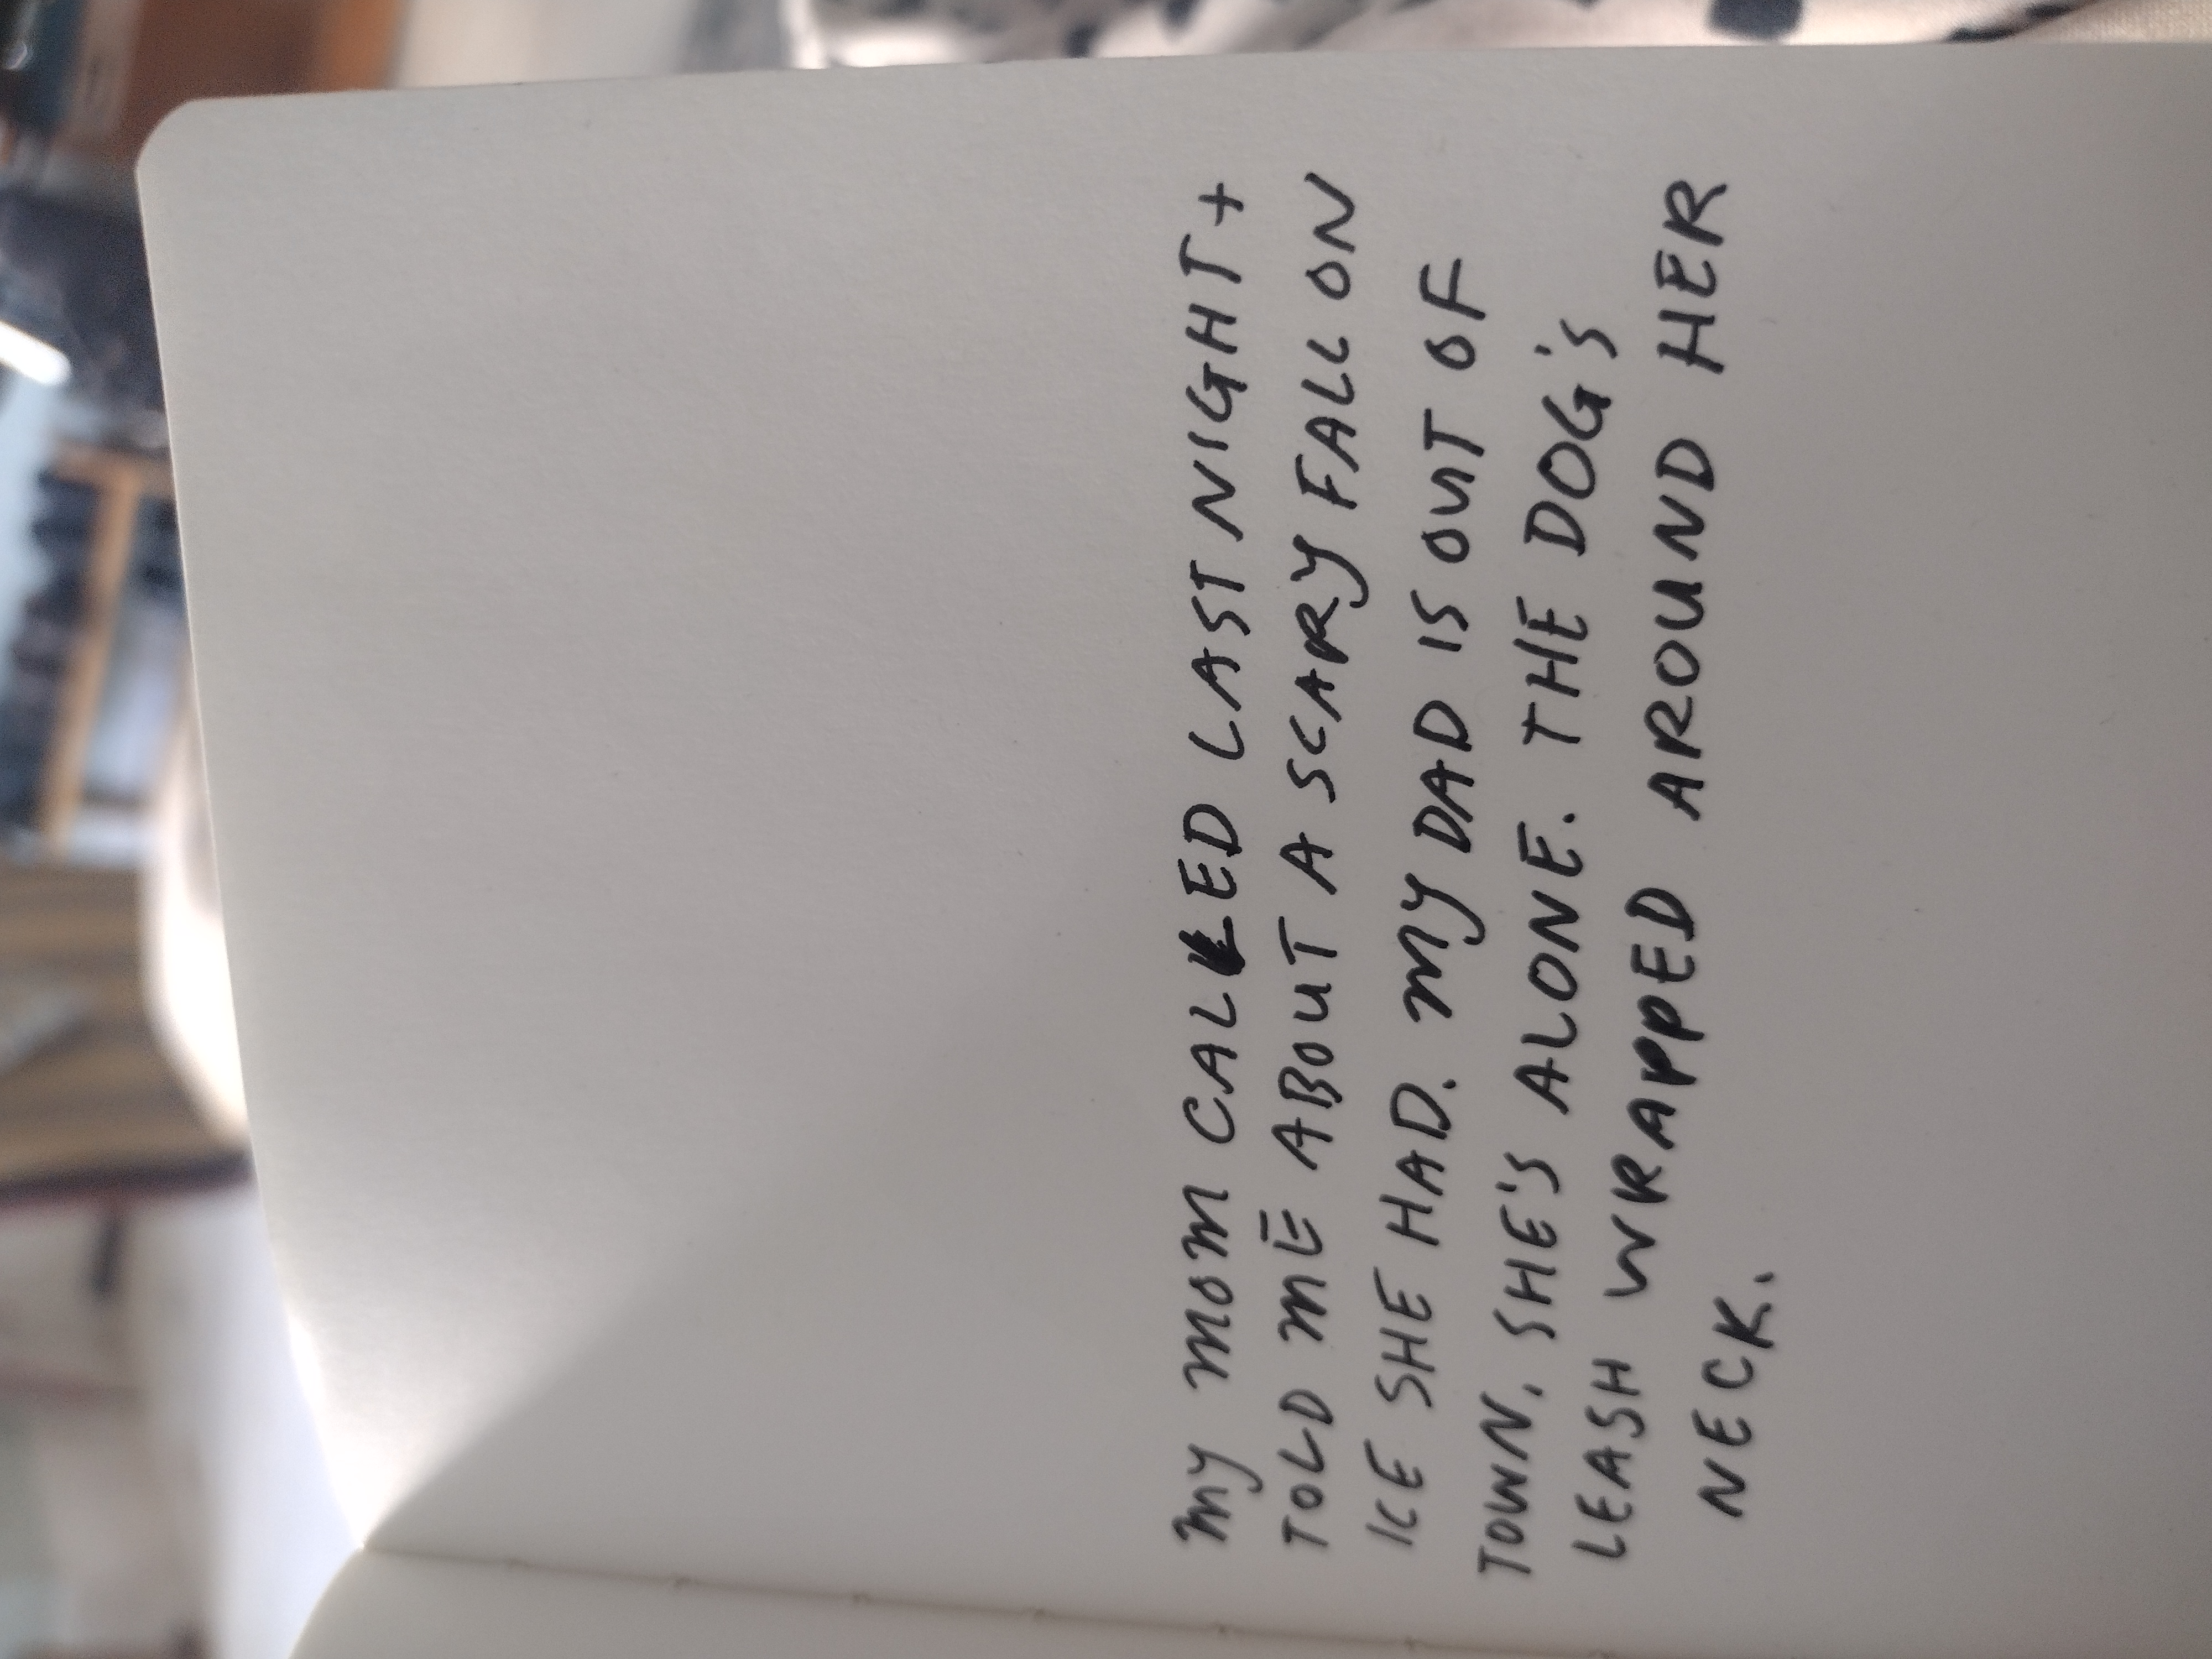 MY MOM CALLED LAST NIGHT +
TOLD ME ABOUT A SCARY FALL ON
ICE SHE HAD. MY DAD IS OUT OF
TOWN, SHE'S ALONE. THE DOG'S
LEASH WRAPPED AROUND HER
NECK.